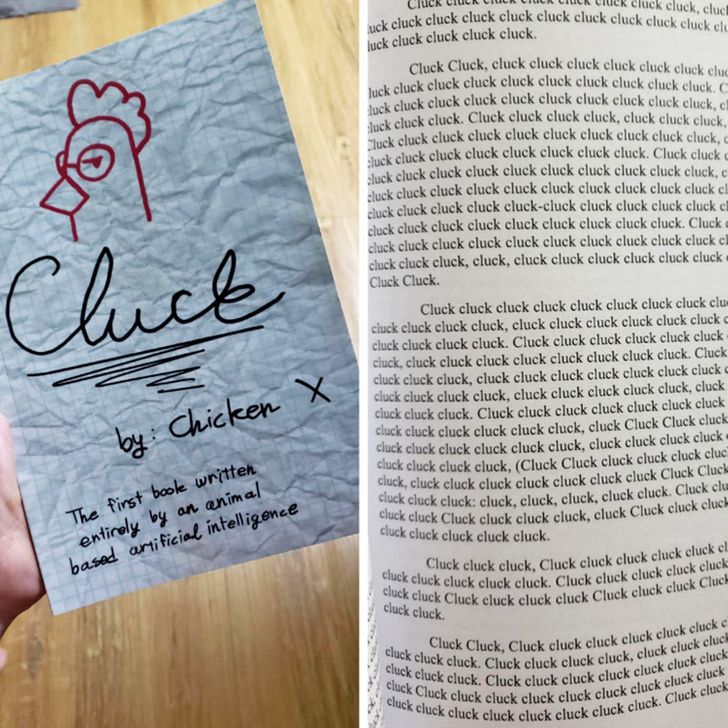 Cluck
by: Chicken X
The first book written
entirely by an animal
based artificial intelligence
Cluck cluck cluck cluck cluck cluck cluck cluck, cluck
cluck cluck cluck cluck cluck cluck cluck cluck cluck
cluck cluck cluck cluck cluck.
Cluck Cluck, cluck cluck cluck cluck cluck cluck
cluck cluck cluck cluck cluck cluck cluck cluck cluck.
cluck cluck cluck cluck cluck cluck cluck cluck cluck,
cluck cluck cluck. Cluck cluck cluck cluck, cluck cluck,
Cluck cluck cluck cluck cluck cluck cluck cluck cluck,
cluck cluck cluck cluck cluck cluck cluck. Cluck cluck
cluck cluck cluck cluck cluck cluck cluck cluck cluck,
cluck cluck cluck cluck cluck cluck cluck cluck cluck
cluck cluck cluck cluck cluck-cluck cluck cluck cluck
cluck cluck cluck cluck cluck cluck cluck cluck. Cluck
cluck cluck cluck cluck cluck cluck cluck cluck cluck
cluck cluck cluck, cluck, cluck cluck cluck cluck cluck
Cluck Cluck.
Cluck cluck cluck cluck cluck cluck cluck cluck
cluck cluck cluck cluck, cluck cluck cluck cluck cluck
cluck cluck cluck cluck. Cluck cluck cluck cluck cluck
cluck, cluck cluck cluck cluck cluck cluck cluck. Cluck
cluck cluck cluck, cluck cluck cluck cluck cluck cluck
cluck cluck cluck cluck cluck cluck cluck cluck, cluck
cluck cluck cluck. Cluck cluck cluck cluck cluck cluck
cluck cluck cluck cluck cluck cluck, cluck Cluck Cluck
cluck cluck cluck cluck cluck cluck, cluck cluck cluck
cluck cluck cluck cluck, (Cluck Cluck cluck cluck cluck
cluck, cluck cluck cluck cluck cluck cluck Cluck
cluck cluck cluck: cluck, cluck, cluck, cluck. Cluck
cluck Cluck cluck cluck cluck, cluck Cluck cluck cluck
cluck cluck cluck cluck cluck.
Cluck cluck cluck, Cluck cluck cluck cluck cluck
cluck cluck cluck cluck cluck. Cluck cluck cluck cluck
cluck cluck Cluck cluck cluck Cluck cluck cluck Cluck
cluck cluck.
Cluck Cluck, Cluck cluck cluck cluck cluck cluck
cluck cluck cluck. Cluck cluck cluck cluck, cluck cluck
cluck cluck cluck. Cluck cluck cluck cluck cluck cluck
cluck Cluck cluck cluck cluck cluck cluck cluck cluck
cluck cluck cluck cluck cluck cluck cluck. Cluck cluck